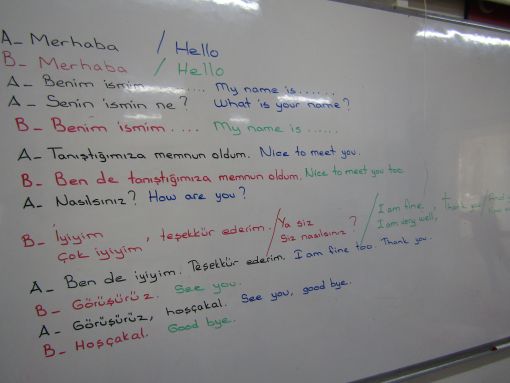 A- Merhaba / Hello
B- Merhaba / Hello
A- Benim ismim ....... My name is ......
A- Senin ismin ne? What is your name?
B- Benim ismim .... My name is ......
A- Tanıştığımıza memnun oldum. Nice to meet you.
B- Ben de tanıştığımıza memnun oldum. Nice to meet you too.
A- Nasılsınız? How are you?
B- İyiyim / Ya siz / I am fine, thank you /
çok iyiyim, teşekkür ederim. Siz nasılsınız? I am very well,
A- Ben de iyiyim. Teşekkür ederim. I am fine too. Thank you.
B- Görüşürüz. See you.
A- Görüşürüz, hoşçakal. See you, good bye.
B- Hoşçakal. Good bye.